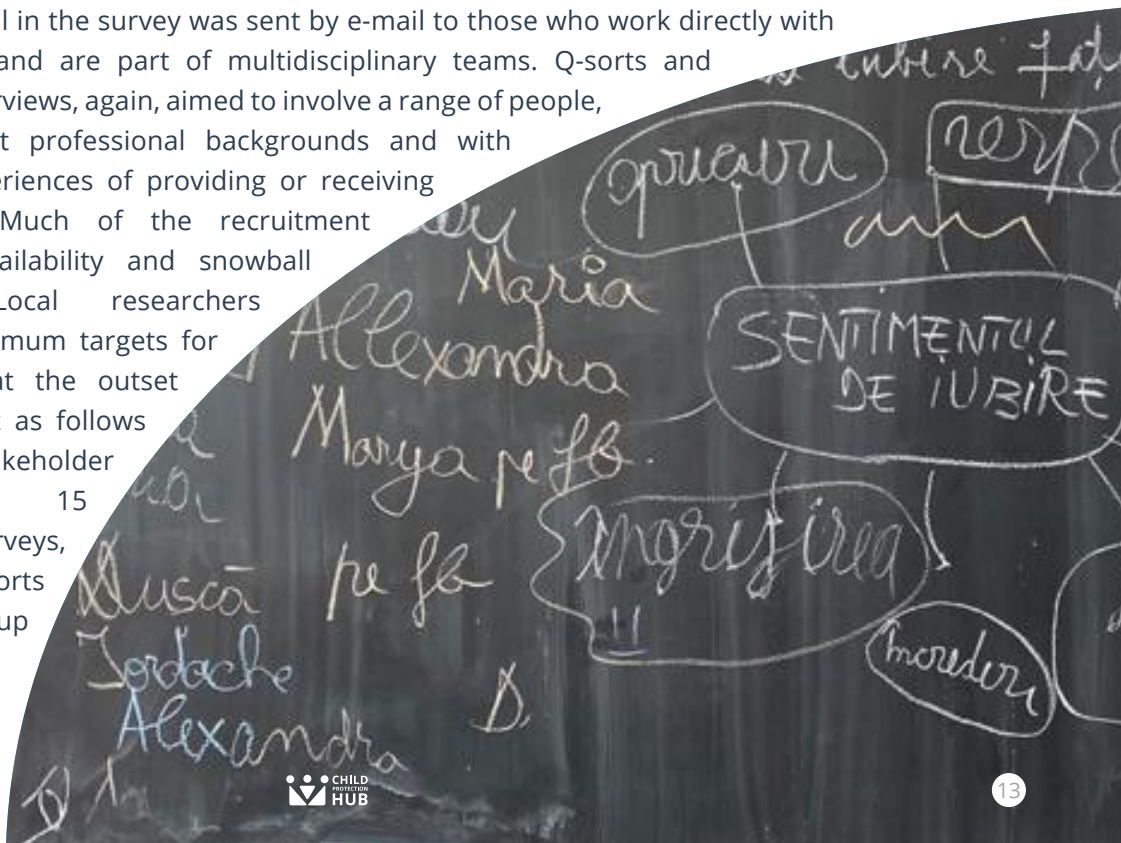 l in the survey was sent by e-mail to those who work directly with
and are part of multidisciplinary teams. Q-sorts and
rviews, again, aimed to involve a range of people,
t professional backgrounds and with
eriences of providing or receiving
Much of the recruitment
ailability and snowball
Local researchers
mum targets for
at the outset
t as follows
keholder
15
rveys,
orts
up
iubire faț
Maria
Allexandra
SENTIMENTUL
DE IUBIRE
Marya pe fb.
pe fb
Duscă
Iordache
Alexandra
D.
CHILD
PROTECTION
HUB
13